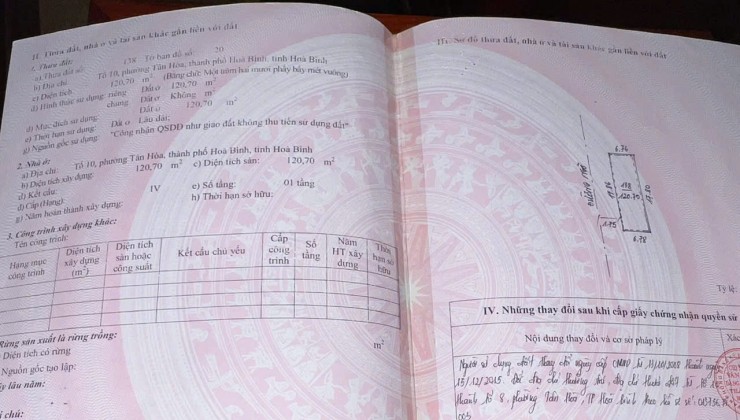 II. Thửa đất, nhà ở và tài sản khác gắn liền với đất
1. Thửa đất:
a) Thửa đất số: 138 Tờ bản đồ số: 20
b) Địa chỉ: Tổ 10, phường Tân Hòa, thành phố Hoà Bình, tỉnh Hoà Bình
c) Diện tích: 120,70 m² (Bằng chữ: Một năm hai mươi phẩy bảy mét vuông)
d) Hình thức sử dụng: riêng Đất ở 120,70 m²
chung Đất ở Không m²
đ) Mục đích sử dụng: Đất ở 120,70 m²
e) Thời hạn sử dụng: Đất ở Lâu dài;
g) Nguồn gốc sử dụng: "Công nhận QSDĐ như giao đất không thu tiền sử dụng đất".
2. Nhà ở:
a) Địa chỉ: Tổ 10, phường Tân Hòa, thành phố Hoà Bình, tỉnh Hoà Bình
b) Diện tích xây dựng: 120,70 m² c) Diện tích sàn: 120,70 m²
d) Kết cấu: e) Số tầng: 01 tầng
đ) Cấp (Hạng): IV h) Thời hạn sở hữu:
g) Năm hoàn thành xây dựng:
3. Công trình xây dựng khác:
Tên công trình:
Hạng mục công trình Diện tích xây dựng (m²) Diện tích sàn hoặc công suất Kết cấu chủ yếu Cấp công trình Số tầng Năm HT xây dựng Thời hạn sở hữu
Rừng sản xuất là rừng trồng:
Diện tích có rừng m²
Nguồn gốc tạo lập:
lâu năm:
chú:
III. Sơ đồ thửa đất, nhà ở và tài sản khác gắn liền với đất
6.76
138
120.70
17.80
1.95
6.78
Tỷ lệ:
IV. Những thay đổi sau khi cấp giấy chứng nhận quyền sử
Nội dung thay đổi và cơ sở pháp lý Xác
Người sử dụng đất thay đổi ngày cấp CMND từ
15/12/2015. địa chỉ thường trú
thành tổ 8, phường Tân Hòa, TP Hoà Bình theo hồ sơ số